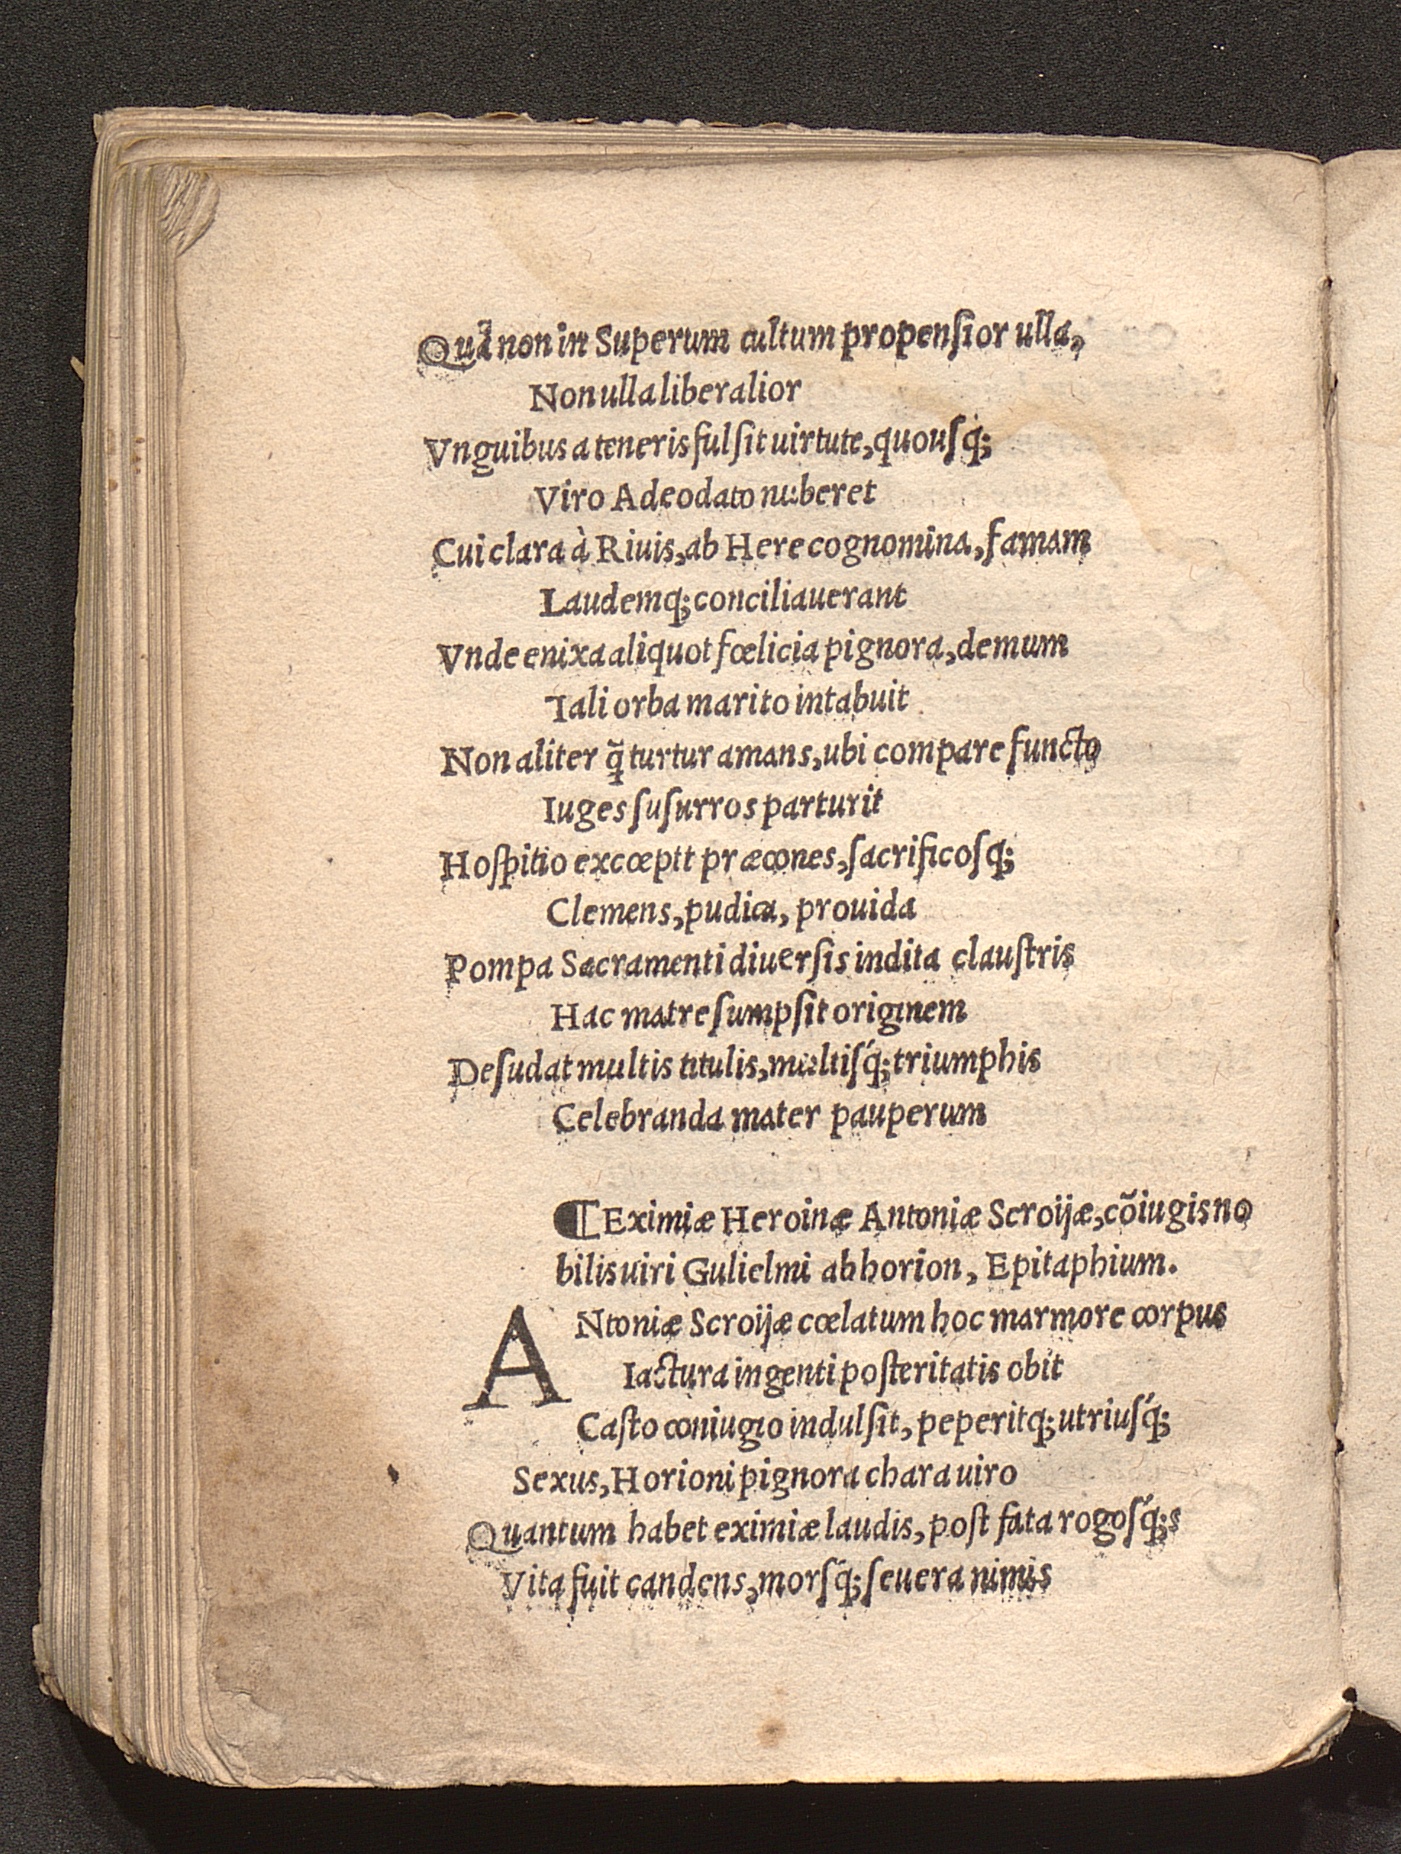 Quā non in Superum cultum propensior ulla,
Non ulla liberalior
Vnguibus a teneris fulsit uirtute, quousq́;
Viro Adeodato nuberet
Cui clara à Riuis, ab Here cognomina, famam
Laudemq; conciliauerant
Vnde enixa aliquot fœlicia pignora, demum
Tali orba marito intabuit
Non aliter q̃ turtur amans, ubi compare functo
Iuges susurros parturit
Hospitio excœpit præcones, sacrificosq;
Clemens, pudica, prouida
Pompa Sacramenti diuersis indita claustris
Hac matre sumpsit originem
Desudat multis titulis, multisq́; triumphis
Celebranda mater pauperum
¶ Eximiæ Heroinæ Antoniæ Scroijæ, cõiugis no
bilis uiri Gulielmi ab horion, Epitaphium.
ANtoniæ Scroijæ cœlatum hoc marmore corpus
Iactura ingenti posteritatis obit
Casto coniugio indulsit, peperitq; utriusq́;
Sexus, Horioni pignora chara uiro
Quantum habet eximiæ laudis, post fata rogosq́;s
Vita fuit candens, morsq́; seuera nimis